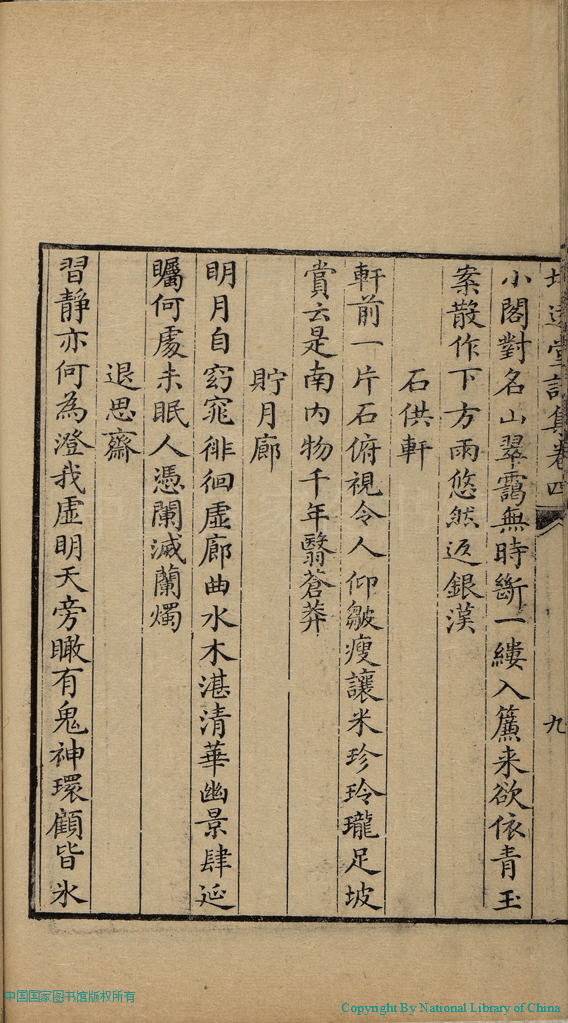 堂詩集卷四
九
小閣對名山翠靄無時斷一縷入簾来欲依青玉
案散作下方雨悠然返銀漢
石供軒
軒前一片石俯視令人仰皺瘦讓米珍玲瓏足坡
賞云是南内物千年翳蒼莽
貯月廊
明月自窈窕徘徊虛廊曲水木湛清華幽景肆延
矚何處未眠人憑闌滅蘭燭
退思齋
習靜亦何為澄我虛明天旁瞰有鬼神環顧皆氷
中国国家图书馆版权所有
Copyright By National Library of China